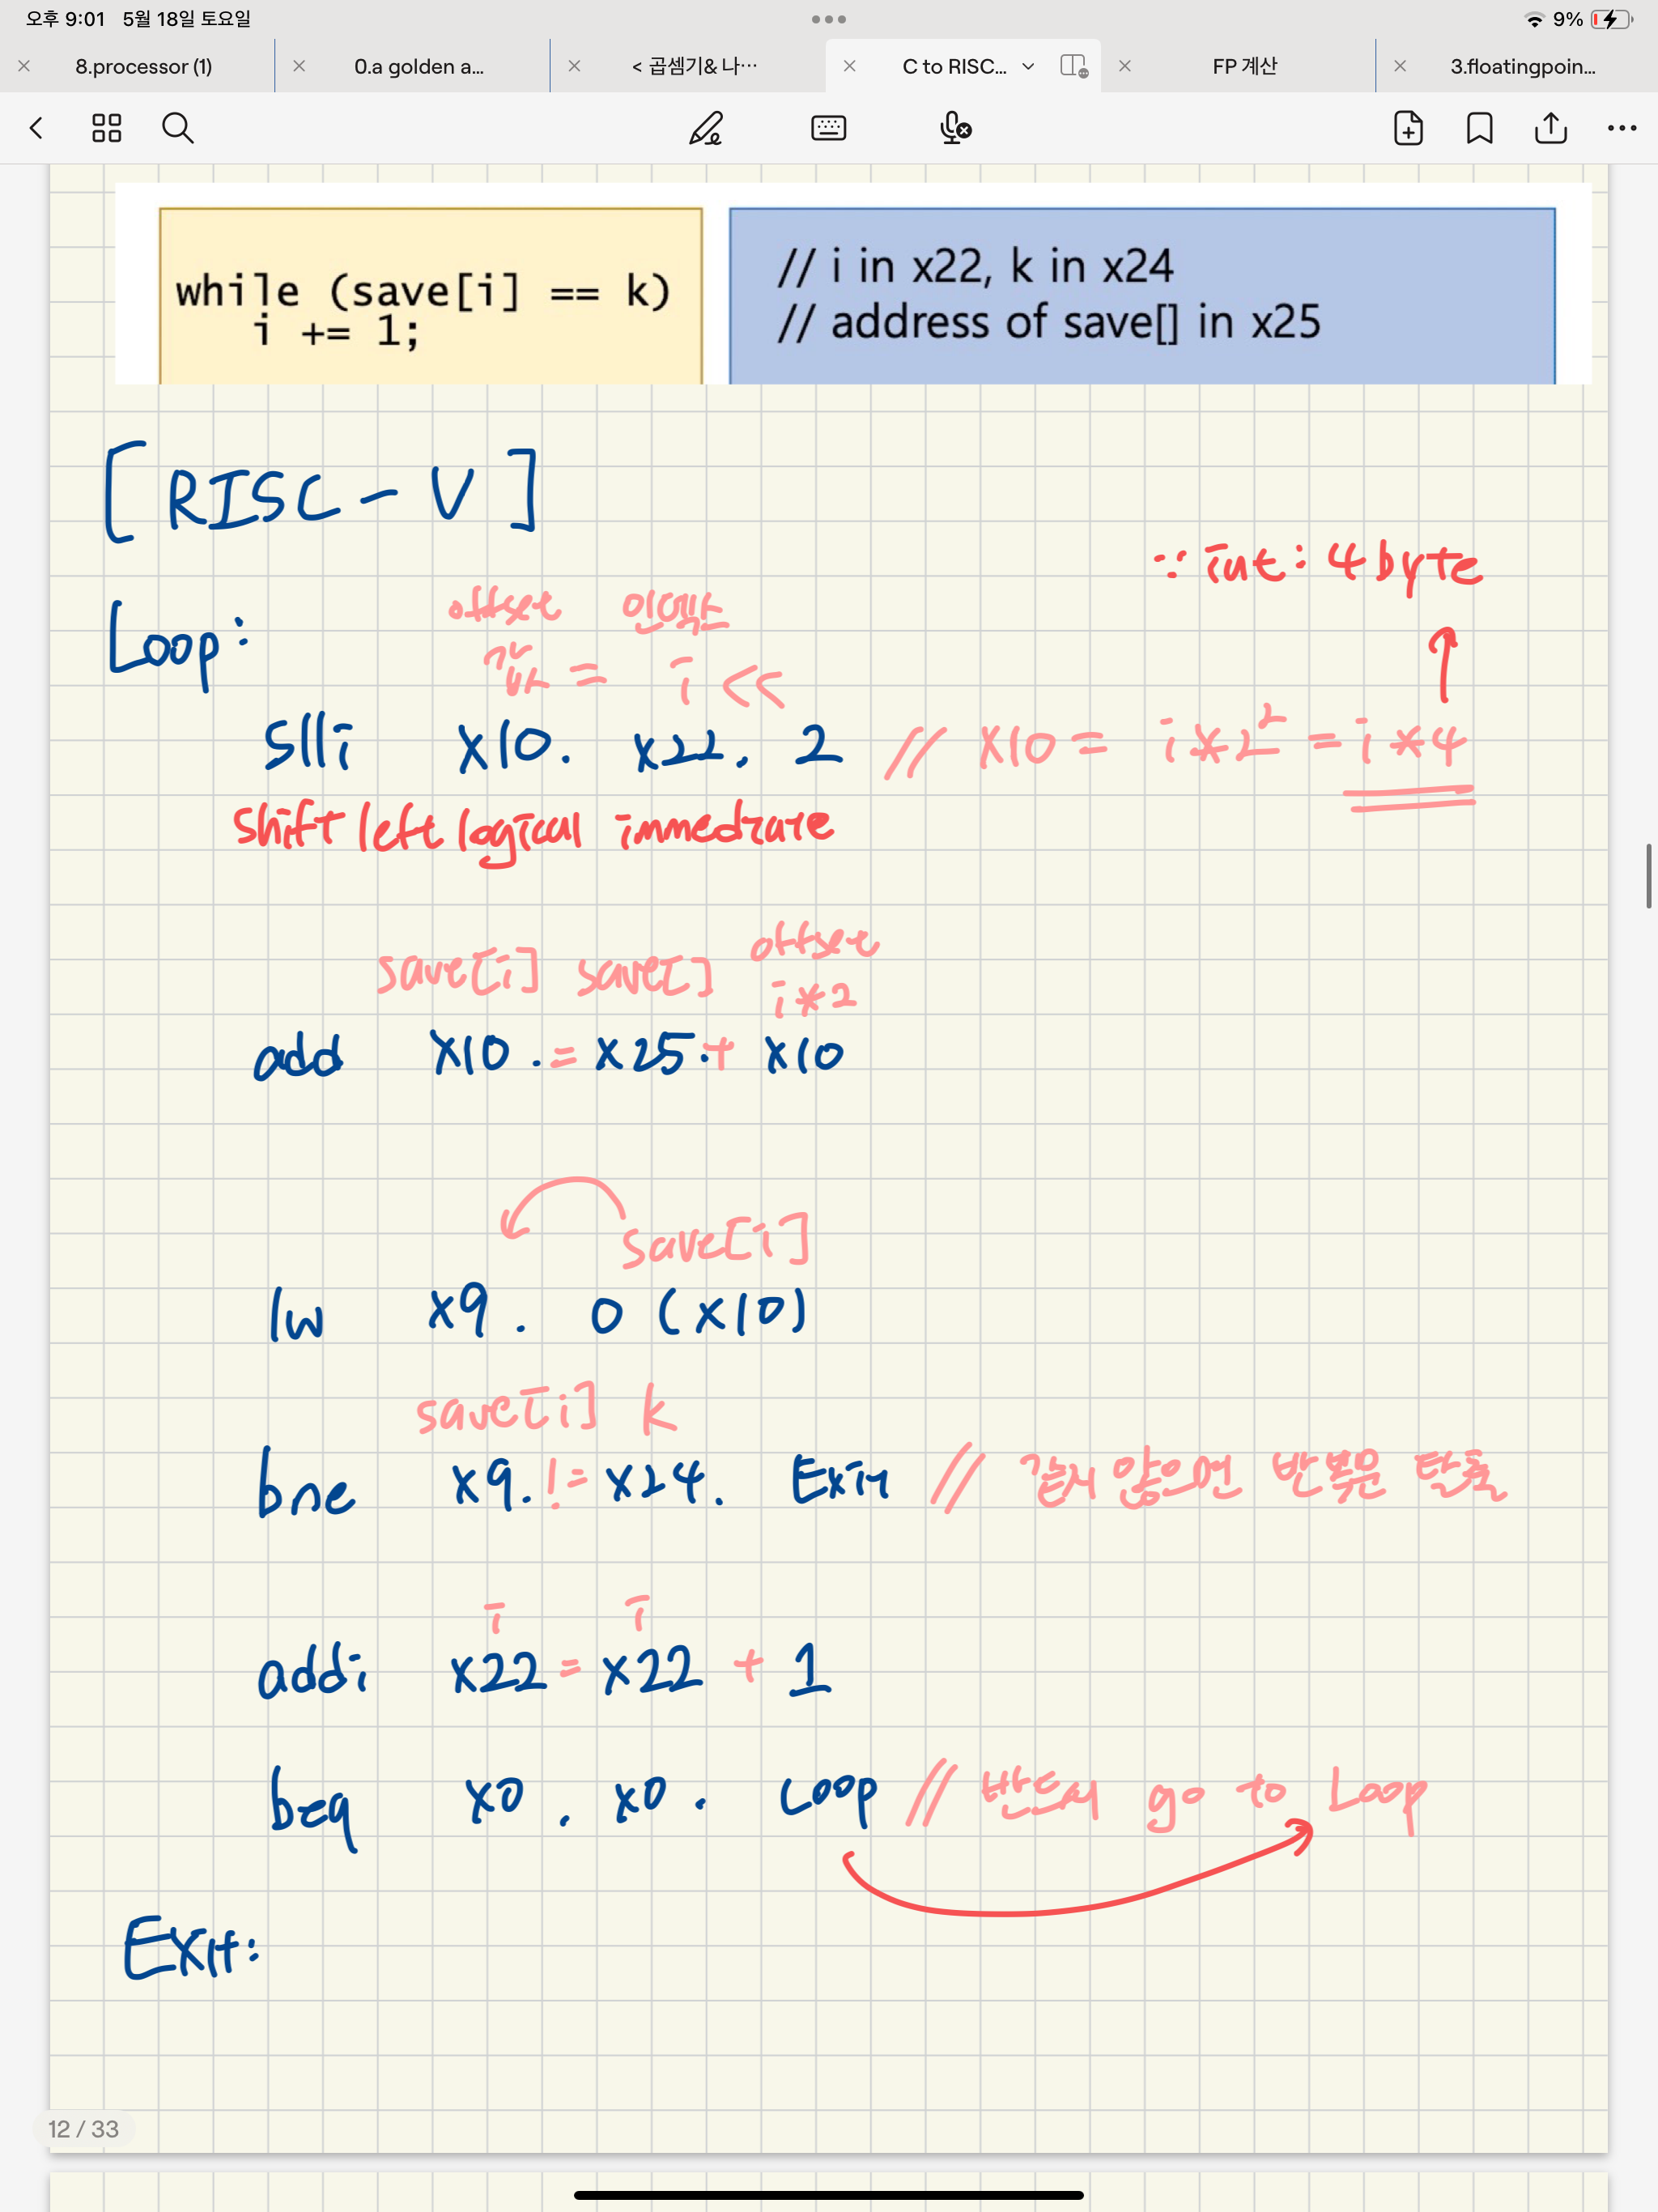 오후 9:01 5월 18일 토요일 9%
8.processor (1) 0.a golden a... < 곱셈기& 나… C to RISC... FP 계산 3.floatingpoin...
while (save[i] == k) 
i += 1;
// i in x22, k in x24
// address of save[] in x25
[ RISC-V ]
∵ int: 4byte
Loop:
offset 인덱스
값 = i <<
slli x10. x22. 2 // x10 = i*2² = i*4
shift left logical immediate
save[i] save[] offset
i*2
add x10 .= x25.+ x10
save[i]
lw x9. 0(x10)
save[i] k
bne x9. != x24. Exit // 같지 않으면 반복문 탈출
i i
addi x22 = x22 + 1
beq x0. x0. Loop // 반드시 go to Loop
Exit:
12 / 33